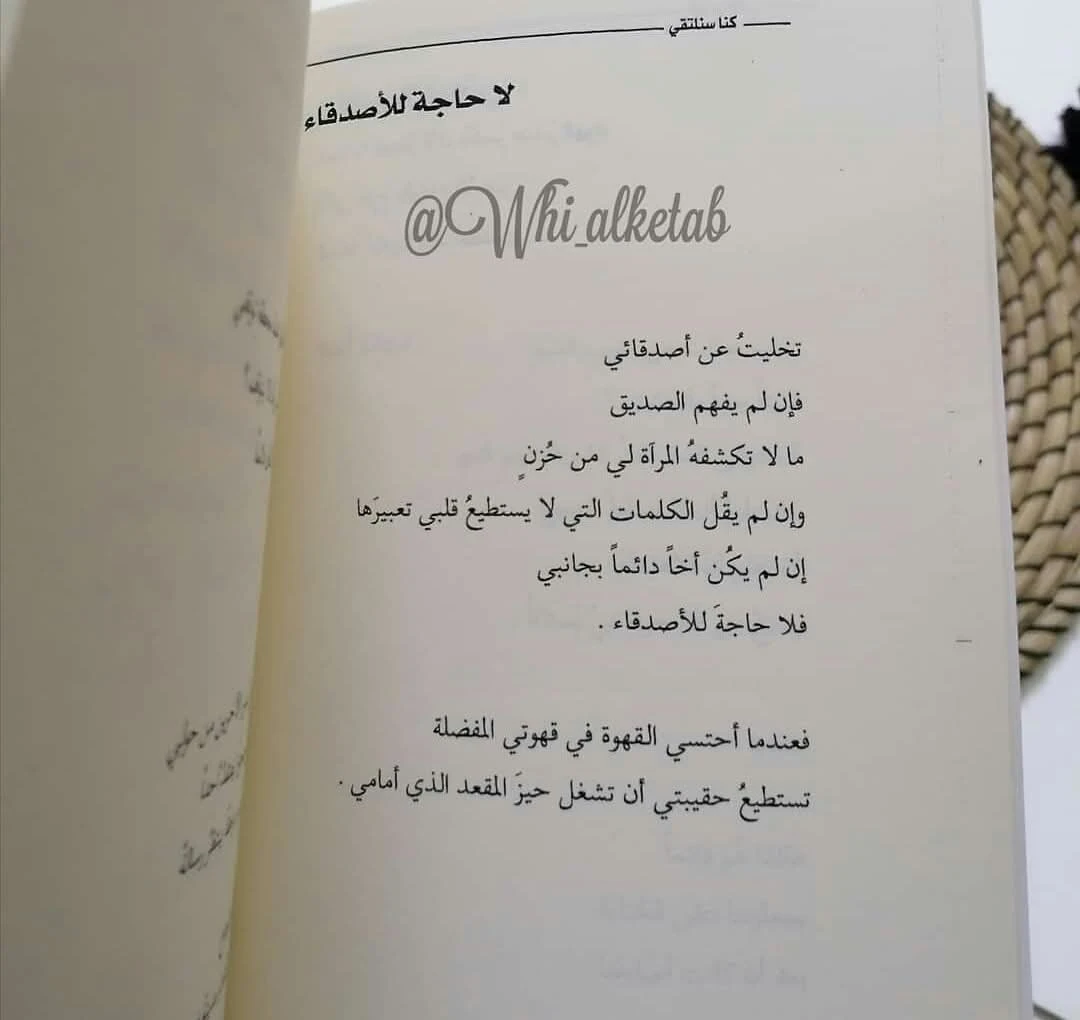 كنا سنلتقي
لا حاجة للأصدقاء
@Whi_alketab
تخليتُ عن أصدقائي
فإن لم يفهم الصديق
ما لا تكشفهُ المرآة لي من حُزنٍ
وإن لم يقُل الكلمات التي لا يستطيعُ قلبي تعبيرَها
إن لم يكُن أخاً دائماً بجانبي
فلا حاجةَ للأصدقاء .
فعندما أحتسي القهوة في قهوتي المفضلة
تستطيعُ حقيبتي أن تشغل حيزَ المقعد الذي أمامي .